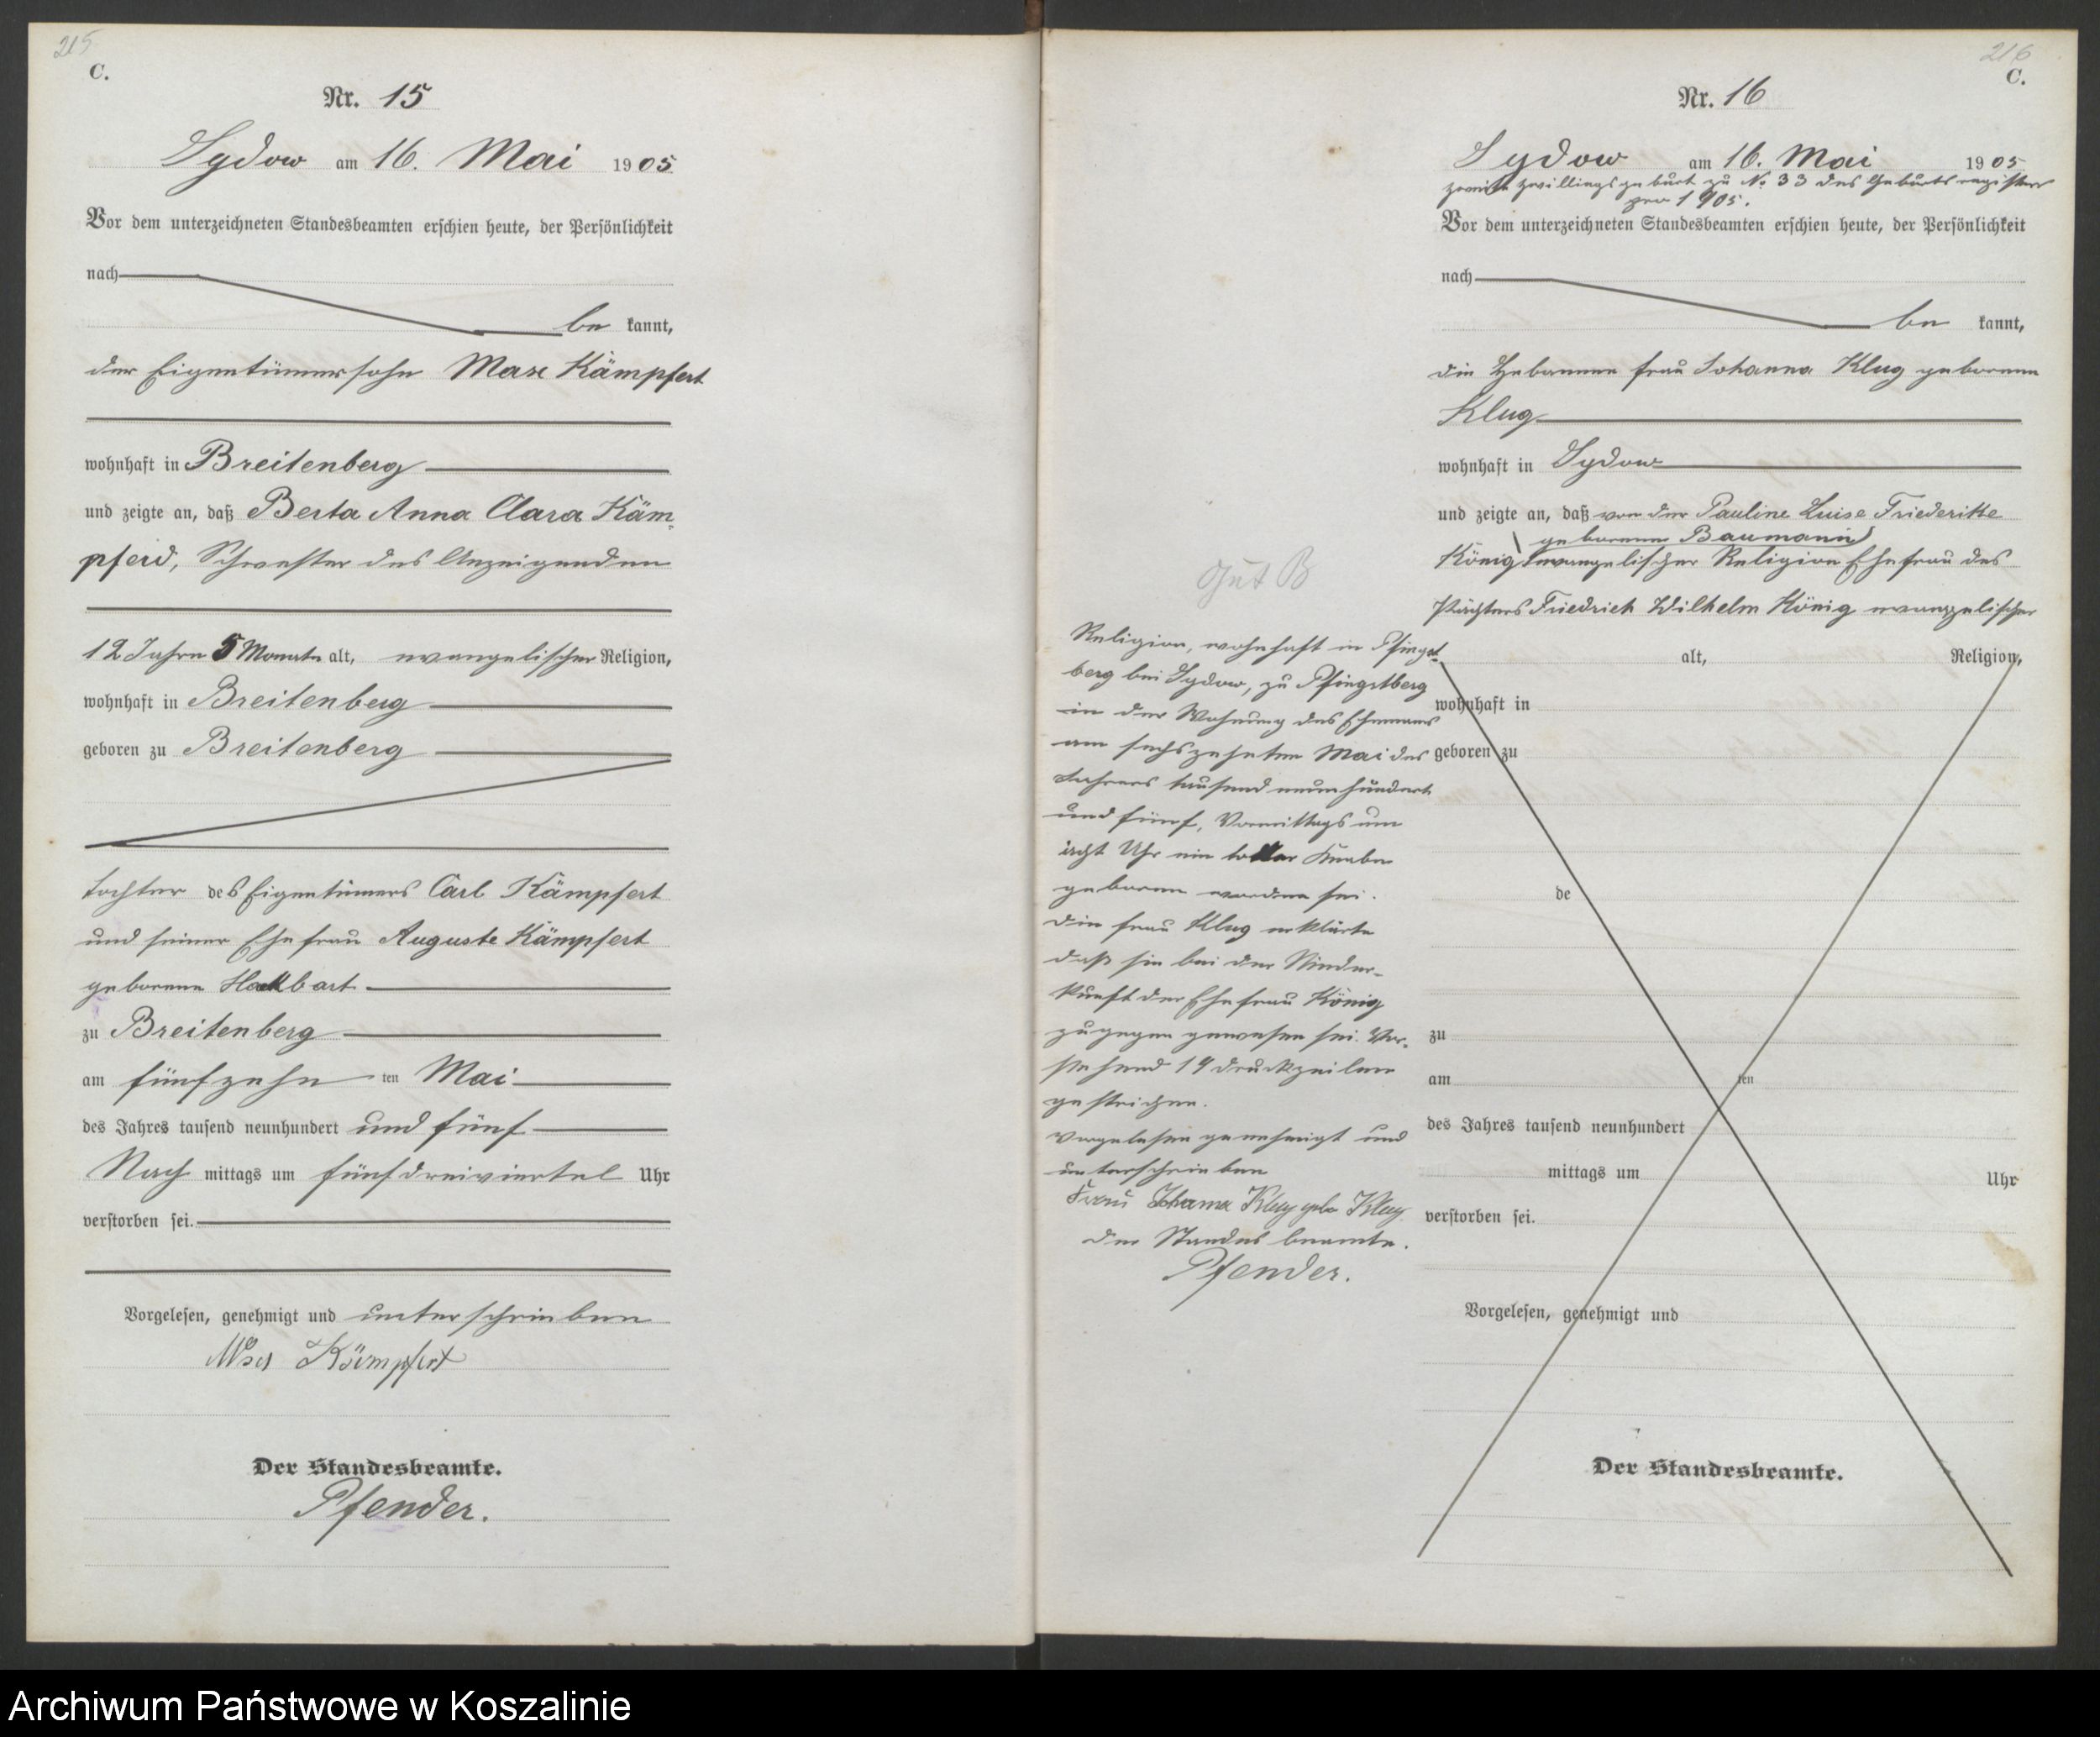 215
C.
Nr. 15
Sydow am 16. Mai 1905
Vor dem unterzeichneten Standesbeamten erschien heute, der Persönlichkeit
nach
be kannt,
der Eigentümersohn Max Kämpfert
wohnhaft in Breitenberg
und zeigte an, daß Berta Anna Clara Käm-
pferd, Schwester des Anzeigenden
12 Jahre 5 Monate alt, evangelischer Religion,
wohnhaft in Breitenberg
geboren zu Breitenberg
Tochter des Eigentümers Carl Kämpfert
und seiner Ehefrau Auguste Kämpfert
geborene Hackbart
zu Breitenberg
am fünfzehn ten Mai
des Jahres tausend neunhundert und fünf
Nach mittags um fünfdreiviertel Uhr
verstorben sei.
Vorgelesen, genehmigt und unterschrieben
Max Kämpfert
Der Standesbeamte.
Pfender.
216
C.
Nr. 16
Sydow am 16. Mai 1905
zweite Zwillingsgeburt zu No 33 des Geburtsregisters
pro 1905.
Vor dem unterzeichneten Standesbeamten erschien heute, der Persönlichkeit
nach
be kannt,
die Hebamme Frau Johanna Klug geborene
Klug
wohnhaft in Sydow
und zeigte an, daß von der Pauline Luise Friederike
geborene Baumann
König evangelischer Religion Ehefrau des
Pächters Friedrich Wilhelm König evangelischer
Gut B
Religion, wohnhaft in Pfingst-
berg bei Sydow, zu Pfingstberg
in der Wohnung des Ehemanns
am sechszehnten Mai des
Jahres tausend neunhundert
und fünf, Vormittags um
acht Uhr ein toter Knabe
geboren worden sei.
Die Frau Klug erklärte
daß sie bei der Nieder-
kunft der Ehefrau König
zugegen gewesen sei. Vor-
stehend 14 Druckzeilen
gestrichen.
Vorgelesen genehmigt und
unterschrieben
Frau Johanna Klug geb Klug
Der Standesbeamte.
Pfender.
alt, Religion,
wohnhaft in
geboren zu
de
zu
am ten
des Jahres tausend neunhundert
mittags um Uhr
verstorben sei.
Vorgelesen, genehmigt und
Der Standesbeamte.
Archiwum Państwowe w Koszalinie